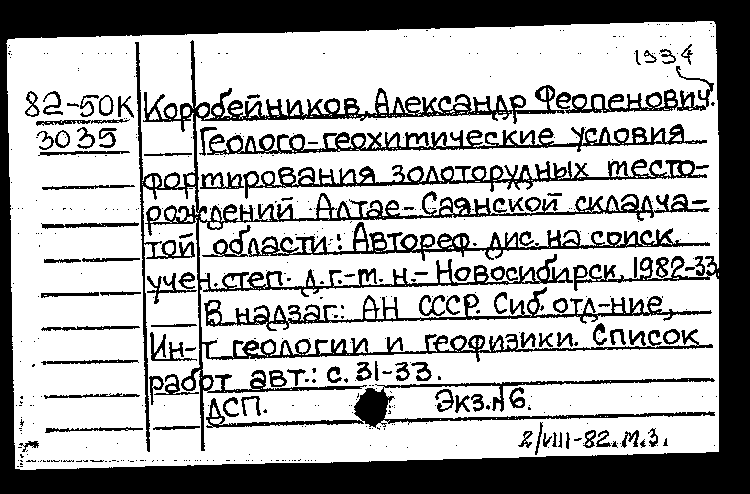 1934
82-50К Коробейников, Александр Феопенович.
3035 Геолого-геохимические условия
формирования золоторудных место-
рождений Алтае-Саянской складча-
той области: Автореф. дис. на соиск.
учен. степ. д.г.-м.н.- Новосибирск, 1982-33
В надзаг.: АН СССР. Сиб. отд-ние,
Ин-т геологии и геофизики. Список
работ авт.: с. 31-33.
ДСП. Экз. №6.
2/VIII-82. М.З.